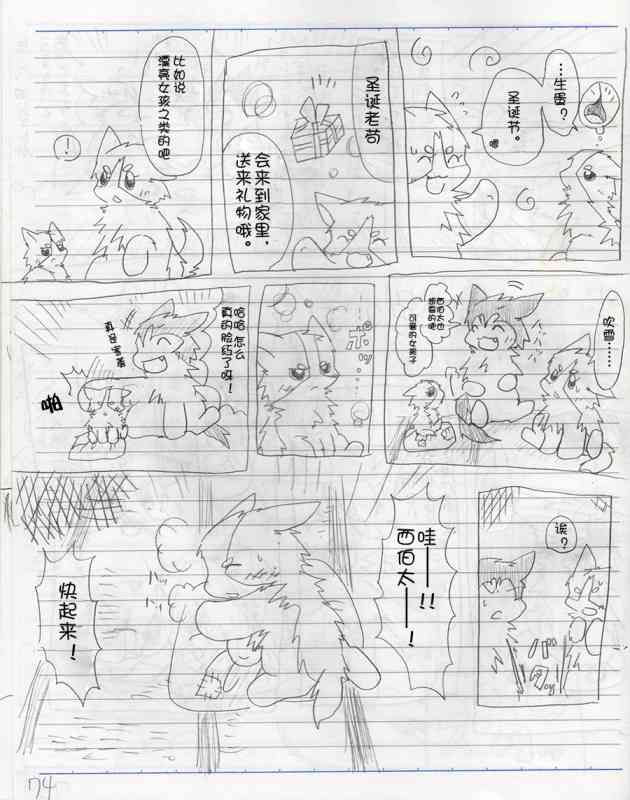 …生蛋?
圣诞节。
嗯
圣诞老苟
会来到家里,
送来礼物哦。
比如说
漂亮女孩之类的吧
!
吹雪………
西伯太也
想要的吧
可爱的女孩子
ポッ…
哈哈 怎么
真的脸红了呀!
真是害羞
啪
诶?
哇——!!
西伯太——!
快起来!
74